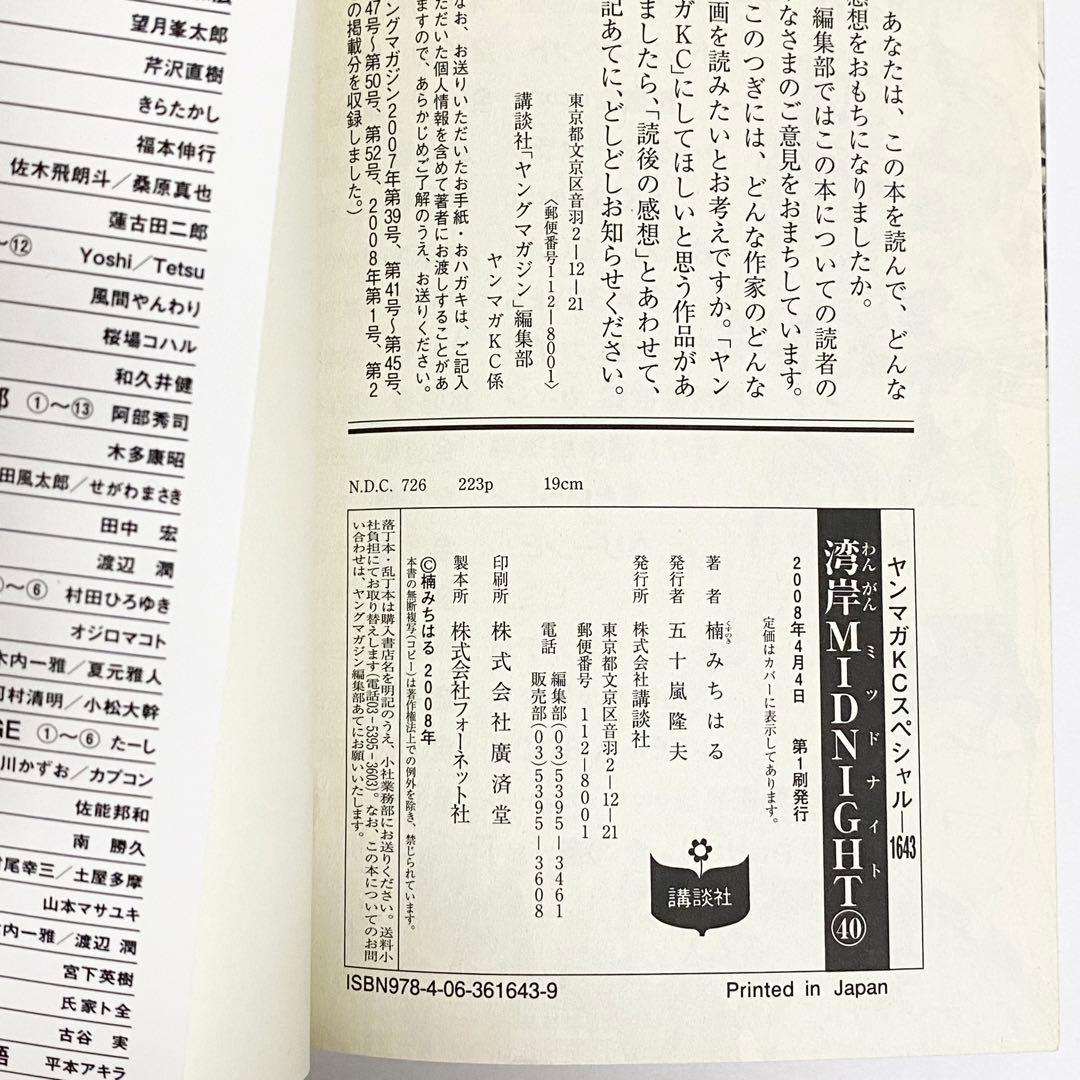 望月峯太郎
芹沢直樹
きらたかし
福本伸行
佐木飛朗斗／桑原真也
蓮古田二郎
～⑫ Yoshi／Tetsu
風間やんわり
桜場コハル
和久井健
①～⑬ 阿部秀司
木多康昭
田風太郎／せがわまさき
田中 宏
渡辺 潤
～⑥ 村田ひろゆき
オジロマコト
木内一雅／夏元雅人
村清明／小松大幹
GE ①～⑥ たーし
川かずお／カプコン
佐能邦和
南 勝久
尾幸三／土屋多摩
山本マサユキ
内一雅／渡辺 潤
宮下英樹
氏家ト全
古谷 実
語 平本アキラ
あなたは、この本を読んで、どんな
感想をおもちになりましたか。
編集部ではこの本についての読者の
なさまのご意見をおまちしています。
このつぎには、どんな作家のどんな
画を読みたいとお考えですか。「ヤン
ガKC」にしてほしいと思う作品があ
ましたら、「読後の感想」とあわせて、
記あてに、どしどしお知らせください。
東京都文京区音羽2―12―21
〈郵便番号112―8001〉
講談社「ヤングマガジン」編集部
ヤンマガKC係
なお、お送りいただいたお手紙・おハガキは、ご記入
ただいた個人情報を含めて著者にお渡しすることがあ
ますので、あらかじめご了解のうえ、お送りください。
ングマガジン2007年第39号、第41号～第45号、
47号～第50号、第52号、2008年第1号、第2
の掲載分を収録しました。）
N.D.C. 726 223p 19cm
ヤンマガKCスペシャル―1643
わんがんミッドナイト
湾岸MIDNIGHT㊵
2008年4月4日 第1刷発行
定価はカバーに表示してあります。
著者 楠みちはる
くすのき
発行者 五十嵐隆夫
発行所 株式会社講談社
東京都文京区音羽2―12―21
郵便番号 112―8001
電話 編集部(03)5395―3461
販売部(03)5395―3608
印刷所 株式会社廣済堂
製本所 株式会社フォーネット社
©楠みちはる 2008年
本書の無断複写(コピー)は著作権法上での例外を除き、禁じられています。
落丁本・乱丁本は購入書店名を明記のうえ、小社業務部にお送りください。送料小
社負担にてお取り替えします(電話03-5395-3603)。なお、この本についてのお問
い合わせは、ヤングマガジン編集部あてにお願いいたします。
講談社
ISBN978-4-06-361643-9
Printed in Japan